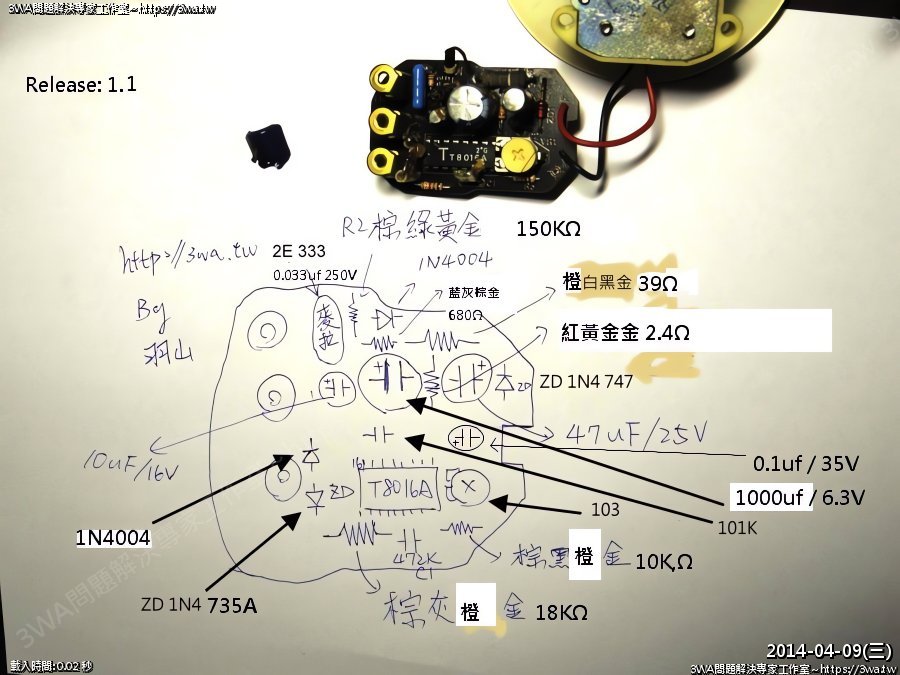 3WA問題解決專家工作室~https://3wa.tw
Release: 1.1
T T8016A
R2棕綠黃金 150KΩ
http://3wa.tw
By
羽山
2E 333
0.033uf 250V
1N4004
麥拉
藍灰棕金
680Ω
橙白黑金 39Ω
紅黃金金 2.4Ω
ZD
ZD 1N4 747
10uF/16V
47uF/25V
0.1uf / 35V
1000uf / 6.3V
101K
103
16
T8016A
ZD
1N4004
ZD 1N4 735A
472K
C1
棕黑橙金 10K,Ω
棕灰橙金 18KΩ
3WA問題解決專家工作室
載入時間:0.02 秒
2014-04-09(三)
3WA問題解決專家工作室~https://3wa.tw